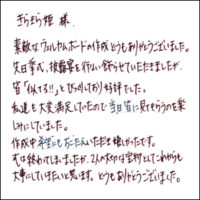 きらきら姫 様
素敵なウェルカムボードの作成どうもありがとうございました。
先日挙式、披露宴を行ない飾らせていただきましたが、
皆「似てる!!」とびっくりしており好評でした。
私達も大変満足していたので当日皆に見てもらうのを楽
しみにしていました。
作成中希望にもおこたえいただき嬉しかったです。
式は終わってしまいましたが、2人の大切な宝物としてこれからも
大事にしていきたいと思います。どうもありがとうございました。